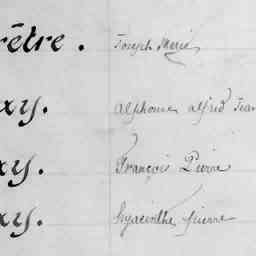 rêtre. Joseph Marie
xy. Alphonse Alfred Jean
xy. François Pierre
xy. Hyacinthe Pierre